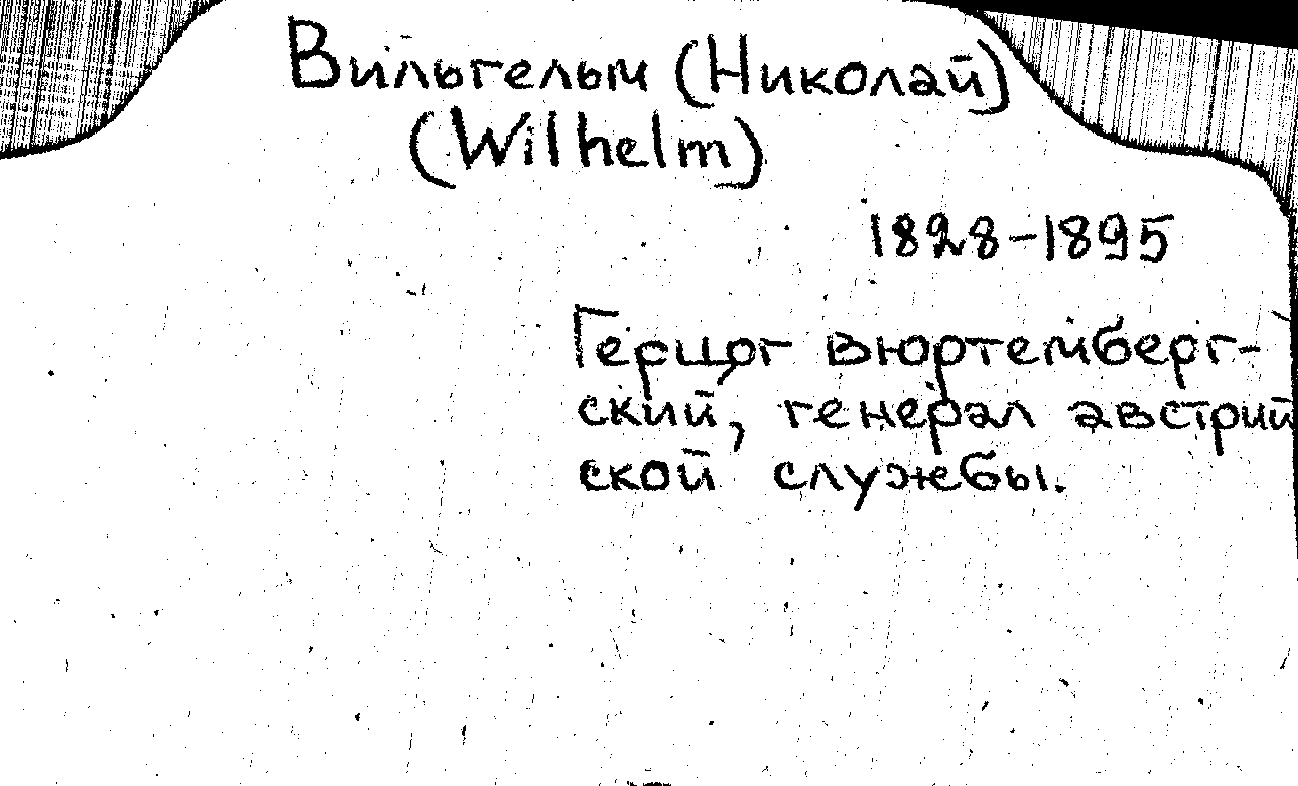 Вильгельм (Николай)
(Wilhelm)
1828-1895
Герцог вюртемберг-
ский, генерал австрий
ской службы.